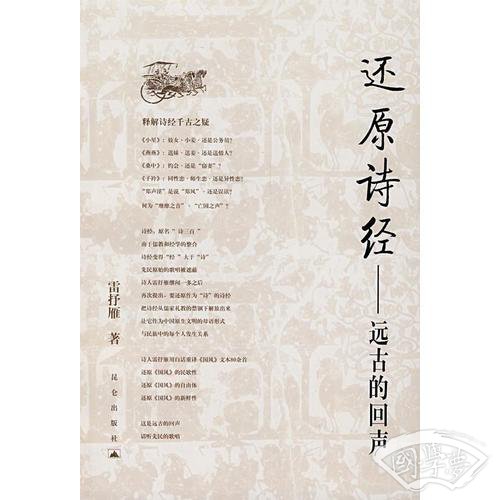 还原诗经——远古的回声
释解诗经千古之疑
《小星》:妓女、小妾、还是公务员?
《燕燕》:送妹、送妾、还是送情人?
《桑中》:约会、还是“窃妻”?
《子衿》:同性恋、师生恋、还是异性恋?
“郑声淫”是说“郑风”、还是误读?
何为“靡靡之音”、“亡国之声”?
诗经,原名“诗三百”
由于儒教和经学的整合
诗经变得“经”大于“诗”
先民原始的歌唱被遮蔽
诗人雷抒雁继闻一多之后
再次提出,要还原作为“诗”的诗经
把诗经从儒家礼教的禁锢下解放出来
让它作为中国原生文明的母语形式
与民族中的每个人发生关系
诗人雷抒雁用白话重译《国风》文本80余首
还原《国风》的民歌性
还原《国风》的自由体
还原《国风》的新鲜性
这是远古的回声
请听先民的歌唱
雷抒雁 著
昆仑出版社
國學夢